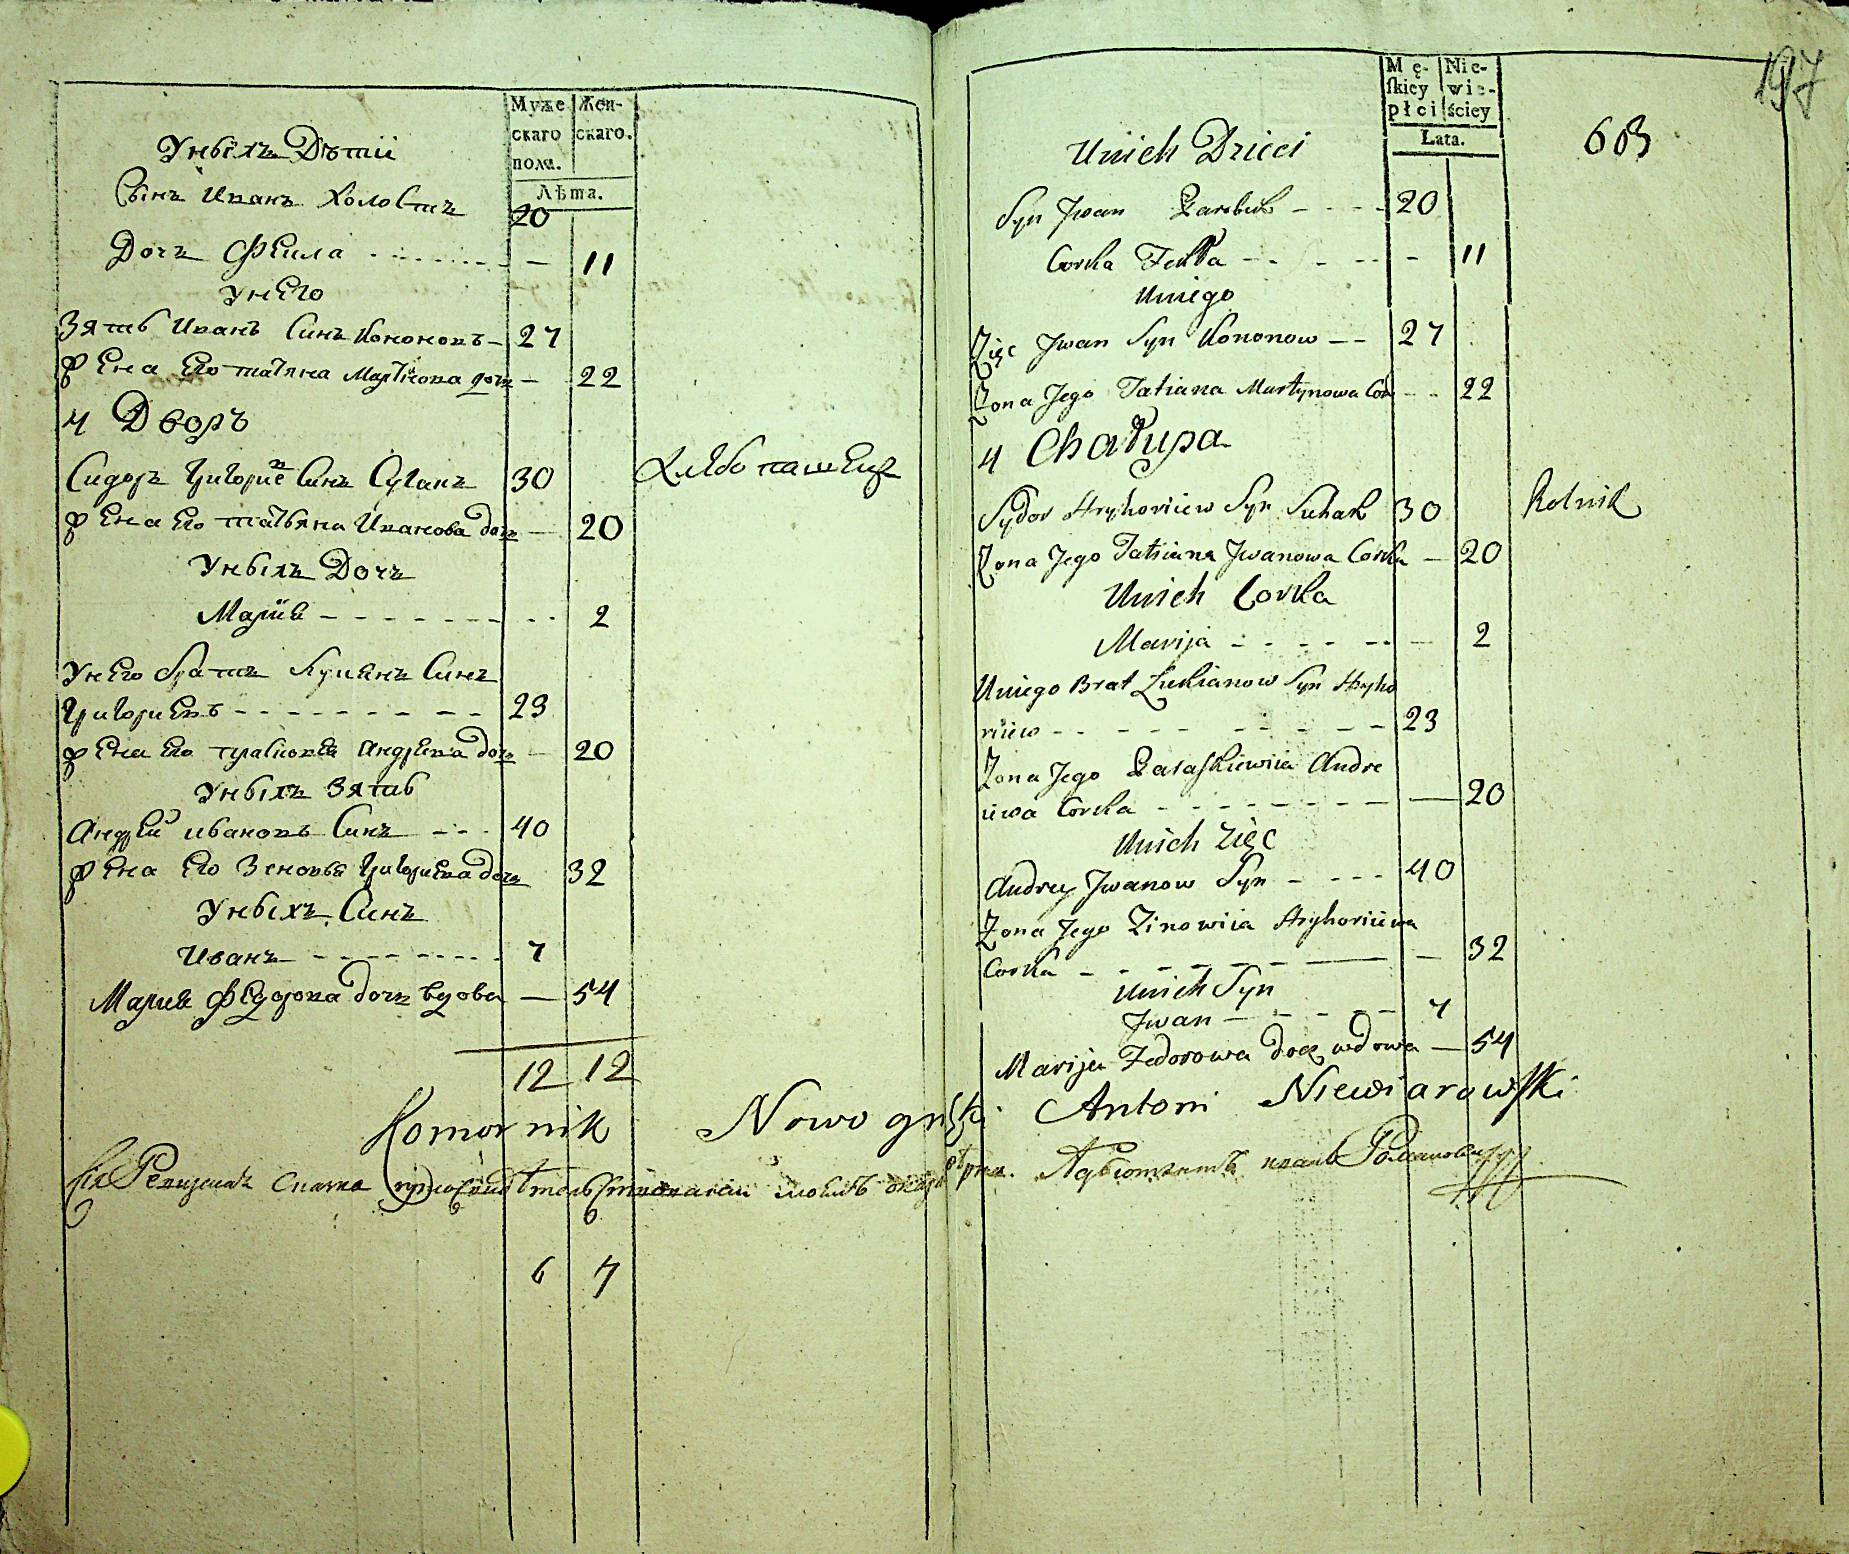 Муже
скаго
пола.
Жен-
скаго.
Лѣта.
Унихъ Дѣти
Сынъ Иванъ Холостъ 20
Дочъ Фекла - 11
Унего
Зять Иванъ Синъ Кононовъ 27
Жена Его татяна Мартинова дочъ - 22
4 Дворъ
Сидоръ Григориевъ Синъ Суганъ 30 Хлебопашецъ
Жена Его татьяна Иванова дочъ - 20
Унихъ Дочъ
Мария - 2
Унего братъ Лукянъ Синъ
Григориевъ 23
Жена Его прасковея Андреева дочъ - 20
Унихъ Зять
Андрей ивановъ Синъ 40
Жена Его Зеновея Григориева дочъ 32
Унихъ Синъ
Иванъ 7
Мария Федорова дочъ вдова - 54
12 12
Komornik Nowogr
6 7
Mę-
skiey
płci
Nie-
wie-
ściey
Lata.
197
603
Unich Dzieci
Syn Jwan 20
Corka Fekła - 11
Uniego
Zięc Jwan Syn Kononow 27
Żona Jego Tatiana Martynowa Cor 22
4 Chałupa
Sydor Hryhoriiew Syn Suhak 30 Rolnik
Żona Jego Tatsiana Jwanowa Corka - 20
Unich Corka
Marija - 2
Uniego Brat Łukianow Syn Hryho
riiew 23
Żona Jego Paraskiewiia Andre
iiwa Corka - 20
Unich Zięc
Andrey Jwanow Syn 40
Żona Jego Zinowiia Hryhoriiewa
Corka - 32
Unich Syn
Jwan 7
Marija Fedorowa docz wdowa - 54
Antoni Niewiarowski